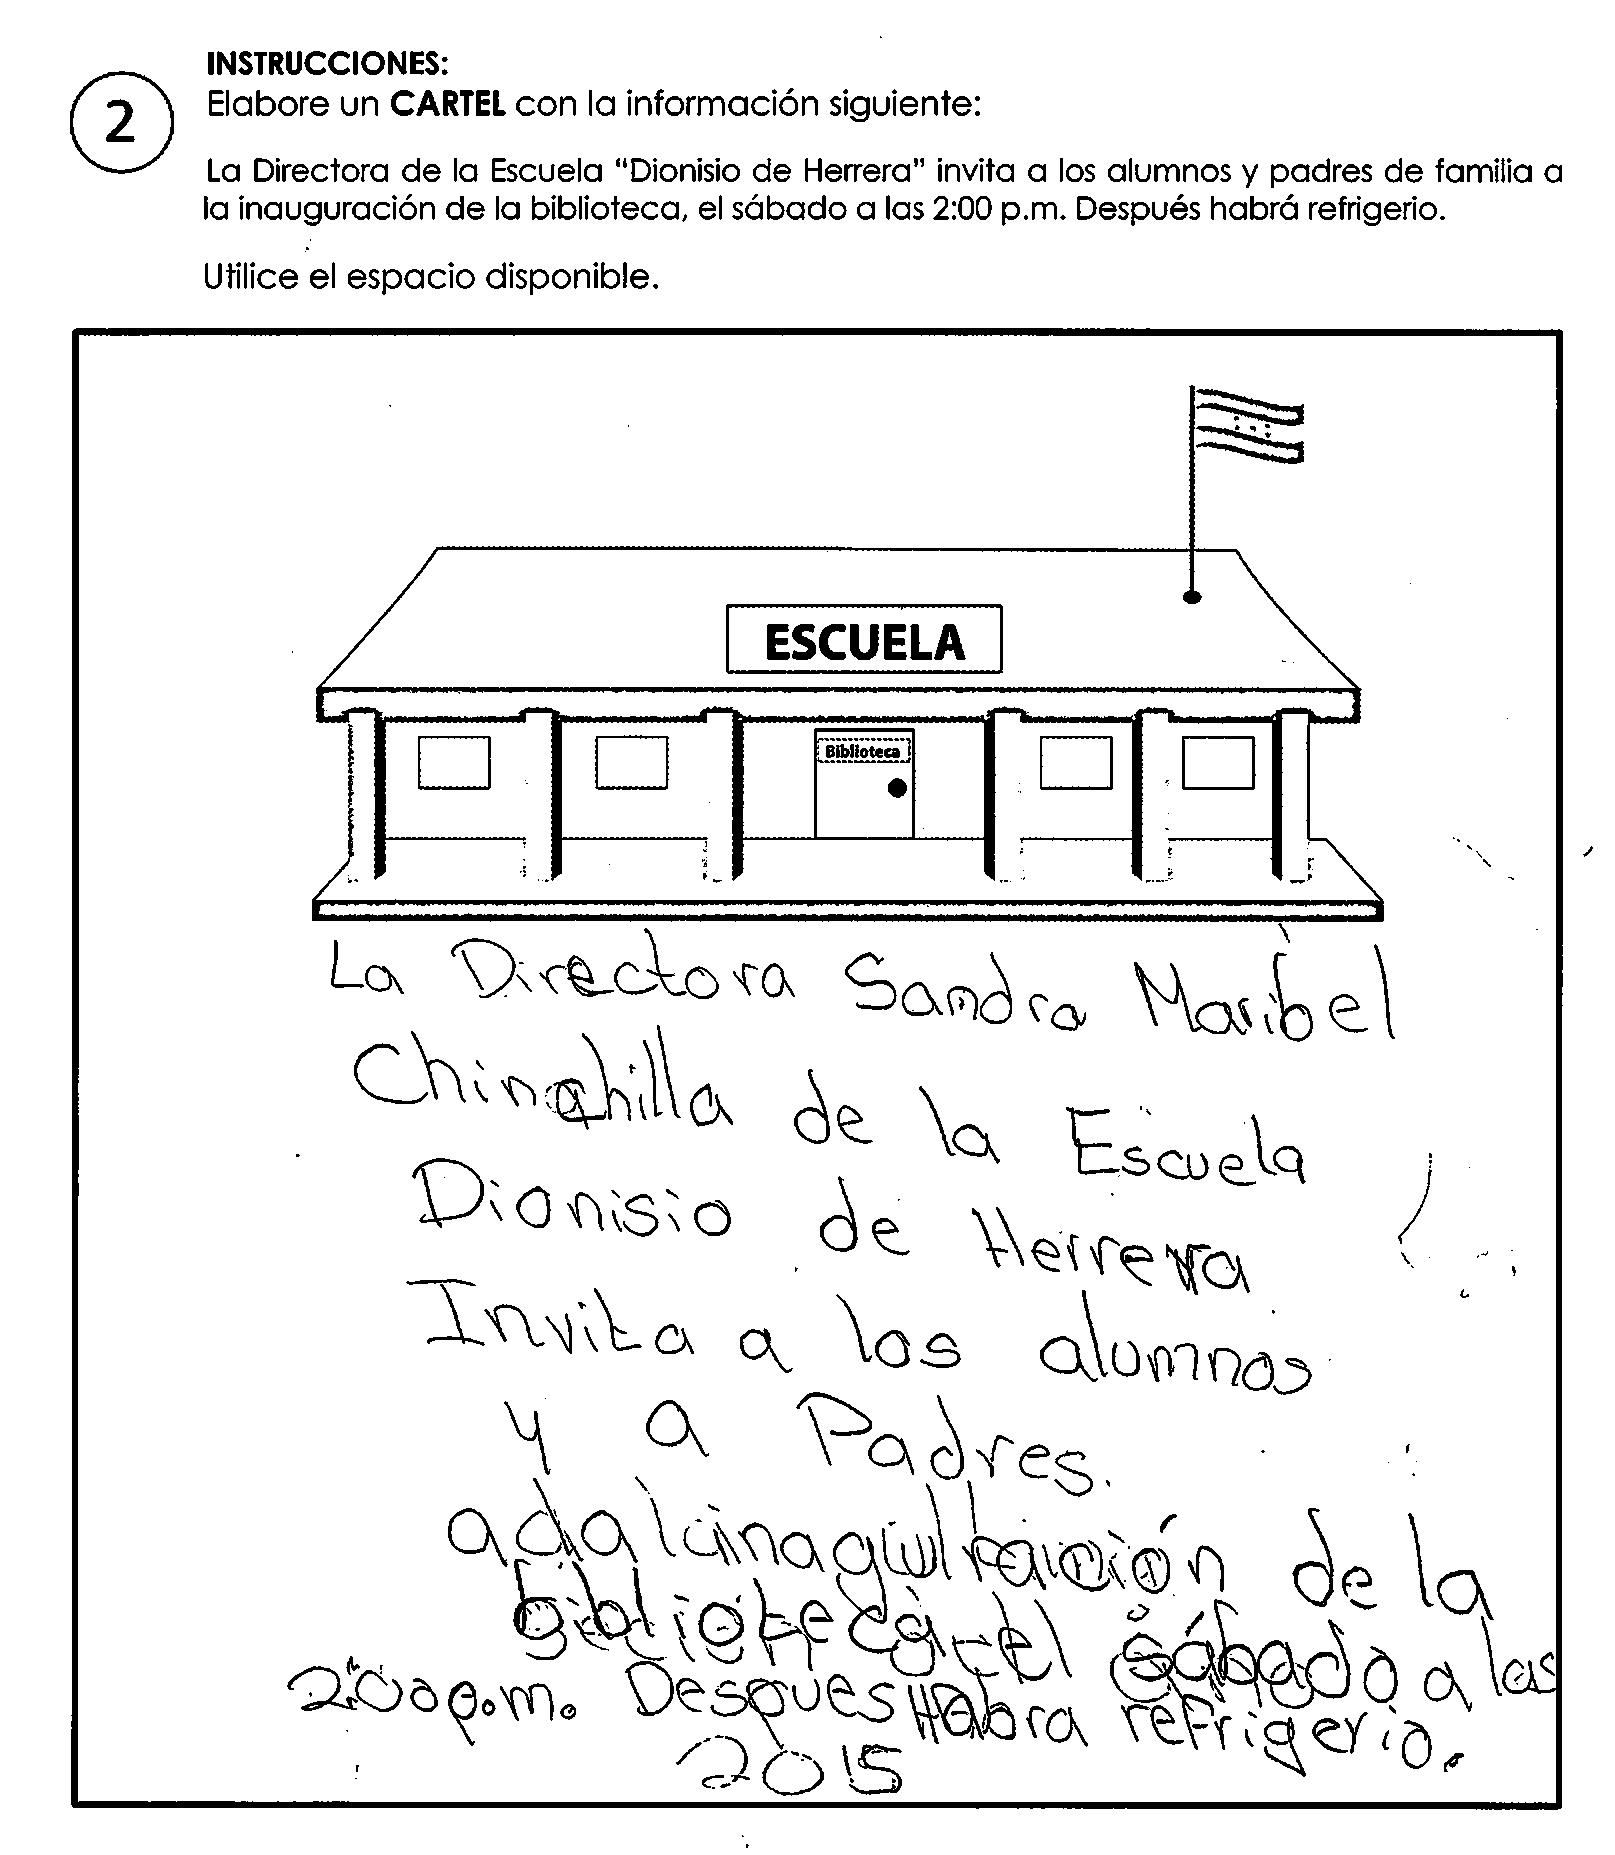 INSTRUCCIONES:
2
Elabore un CARTEL con la información siguiente:
La Directora de la Escuela "Dionisio de Herrera" invita a los alumnos y padres de familia a
la inauguración de la biblioteca, el sábado a las 2:00 p.m. Después habrá refrigerio.
Utilice el espacio disponible.
ESCUELA
Biblioteca
La Directora Sandra Maribel
Chinchilla de la Escuela
Dionisio de Herrera
Invita a los alumnos
y a Padres.
de la
biblioteca el sábado a las
2:00 p.m. Despues Habra refrigerio.
2015